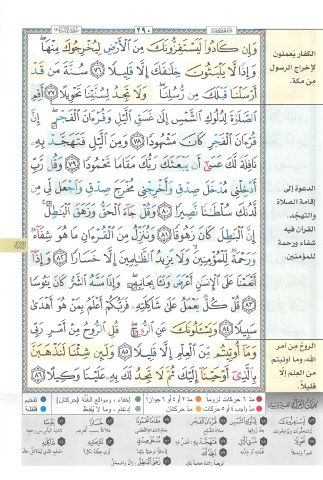 ٢٩٠
وَإِن كَادُوا۟ لَيَسْتَفِزُّونَكَ مِنَ ٱلْأَرْضِ لِيُخْرِجُوكَ مِنْهَا
وَإِذًا لَّا يَلْبَثُونَ خِلَـٰفَكَ إِلَّا قَلِيلًا ٧٦ سُنَّةَ مَن قَدْ
أَرْسَلْنَا قَبْلَكَ مِن رُّسُلِنَا وَلَا تَجِدُ لِسُنَّتِنَا تَحْوِيلًا ٧٧ أَقِمِ
ٱلصَّلَوٰةَ لِدُلُوكِ ٱلشَّمْسِ إِلَىٰ غَسَقِ ٱلَّيْلِ وَقُرْءَانَ ٱلْفَجْرِ إِنَّ
قُرْءَانَ ٱلْفَجْرِ كَانَ مَشْهُودًا ٧٨ وَمِنَ ٱلَّيْلِ فَتَهَجَّدْ بِهِۦ
نَافِلَةً لَّكَ عَسَىٰٓ أَن يَبْعَثَكَ رَبُّكَ مَقَامًا مَّحْمُودًا ٧٩ وَقُل رَّبِّ
أَدْخِلْنِى مُدْخَلَ صِدْقٍ وَأَخْرِجْنِى مُخْرَجَ صِدْقٍ وَٱجْعَل لِّى مِن
لَّدُنكَ سُلْطَـٰنًا نَّصِيرًا ٨٠ وَقُلْ جَآءَ ٱلْحَقُّ وَزَهَقَ ٱلْبَـٰطِلُ
إِنَّ ٱلْبَـٰطِلَ كَانَ زَهُوقًا ٨١ وَنُنَزِّلُ مِنَ ٱلْقُرْءَانِ مَا هُوَ شِفَآءٌ
وَرَحْمَةٌ لِّلْمُؤْمِنِينَ وَلَا يَزِيدُ ٱلظَّـٰلِمِينَ إِلَّا خَسَارًا ٨٢ وَإِذَآ
أَنْعَمْنَا عَلَى ٱلْإِنسَـٰنِ أَعْرَضَ وَنَـَٔا بِجَانِبِهِۦ وَإِذَا مَسَّهُ ٱلشَّرُّ كَانَ يَـُٔوسًا
٨٣ قُلْ كُلٌّ يَعْمَلُ عَلَىٰ شَاكِلَتِهِۦ فَرَبُّكُمْ أَعْلَمُ بِمَنْ هُوَ أَهْدَىٰ
سَبِيلًا ٨٤ وَيَسْـَٔلُونَكَ عَنِ ٱلرُّوحِ قُلِ ٱلرُّوحُ مِنْ أَمْرِ رَبِّى
وَمَآ أُوتِيتُم مِّنَ ٱلْعِلْمِ إِلَّا قَلِيلًا ٨٥ وَلَئِن شِئْنَا لَنَذْهَبَنَّ
بِٱلَّذِىٓ أَوْحَيْنَآ إِلَيْكَ ثُمَّ لَا تَجِدُ لَكَ بِهِۦ عَلَيْنَا وَكِيلًا ٨٦
الكفار يَعملون
لإخراج الرسول
من مكة.
الدعوة إلى
إقامة الصلاة
والتهجّد،
القرآن فيه
شفاء ورحمة
للمؤمنين.
الروحُ من أمر
الله، وما أوتيتم
من العلم إلّا
قليلاً.